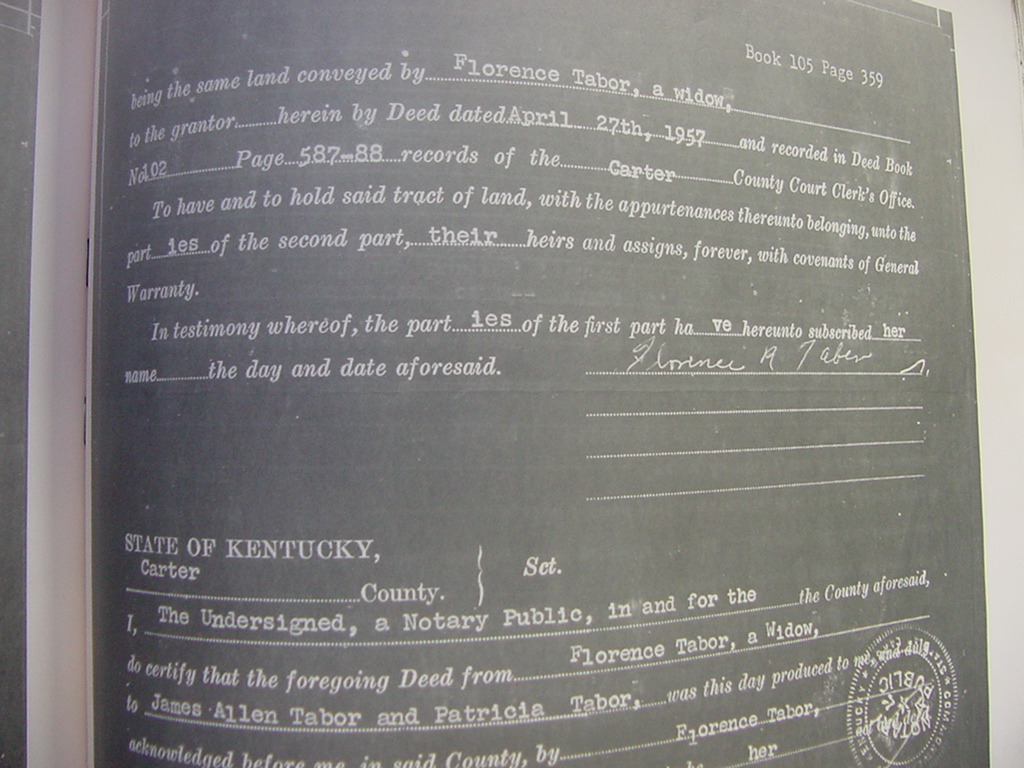 Book 105 Page 359
being the same land conveyed by Florence Tabor, a widow,
to the grantor herein by Deed dated April 27th, 1957 and recorded in Deed Book
No. 102 Page 587-88 records of the Carter County Court Clerk's Office.
To have and to hold said tract of land, with the appurtenances thereunto belonging, unto the
part ies of the second part, their heirs and assigns, forever, with covenants of General
Warranty.
In testimony whereof, the part ies of the first part ha ve hereunto subscribed her
name the day and date aforesaid.
Florence R Tabor
STATE OF KENTUCKY,
Carter County. } Sct.
I, The Undersigned, a Notary Public, in and for the the County aforesaid,
do certify that the foregoing Deed from Florence Tabor, a Widow,
to James Allen Tabor and Patricia Tabor, was this day produced to me, and
acknowledged before me in said County, by Florence Tabor,
her
NOTARY PUBLIC
KENTUCKY